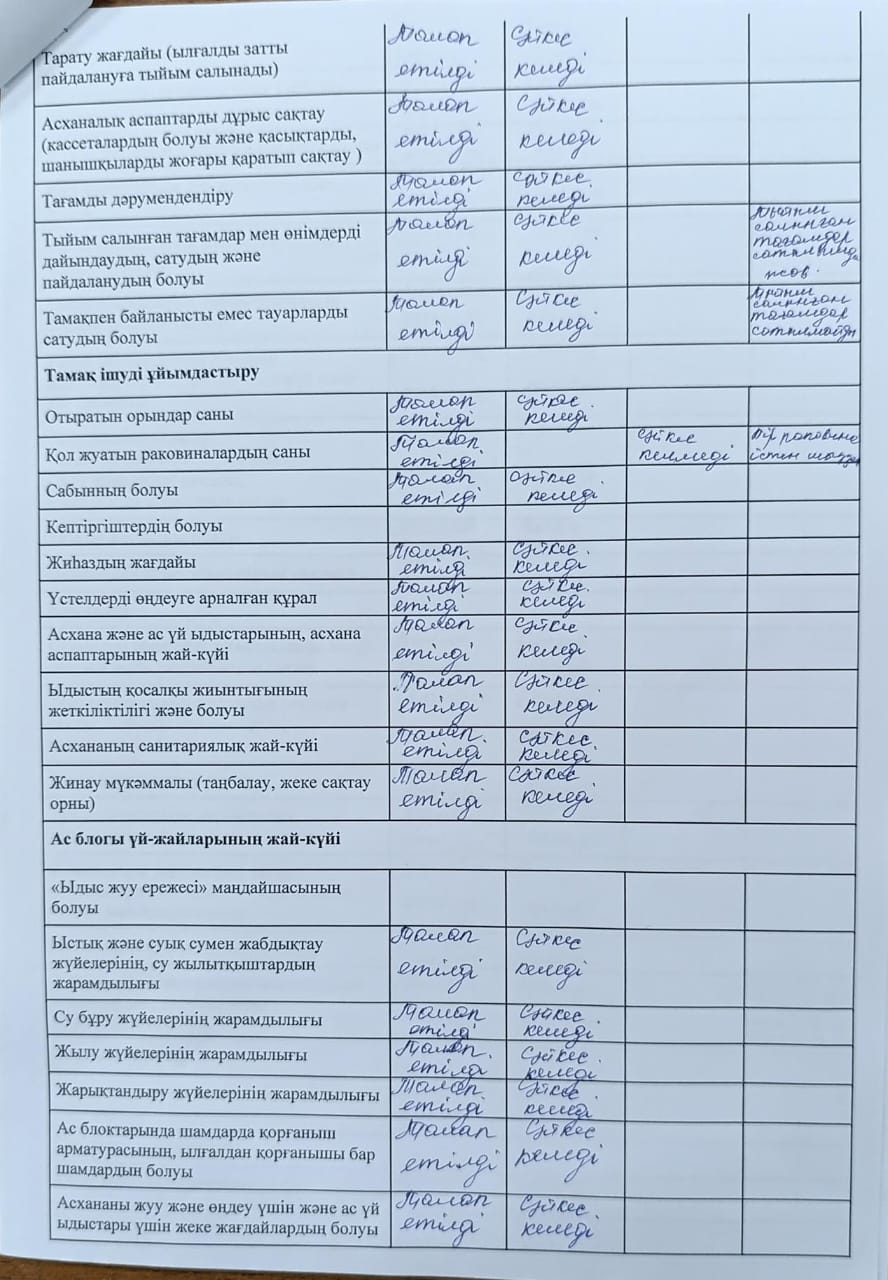 Тарату жағдайы (ылғалды затты
пайдалануға тыйым салынады)
Талап
етілді
Сәйкес
келеді
Асханалық аспаптарды дұрыс сақтау
(кассеталардың болуы және қасықтарды,
шанышқыларды жоғары қаратып сақтау )
Талап
етілді
Сәйкес
келеді
Тағамды дәрумендендіру
Талап
етілді
Сәйкес
келеді
Тыйым салынған тағамдар мен өнімдерді
дайындаудың, сатудың және
пайдаланудың болуы
Талап
етілді
Сәйкес
келеді
салынған
тағамдар
Тамақпен байланысты емес тауарларды
сатудың болуы
Талап
етілді
Сәйкес
келеді
салынған
тағамдар
сатылмайды
Тамақ ішуді ұйымдастыру
Отыратын орындар саны
Талап
етілді
Сәйкес
келеді
Қол жуатын раковиналардың саны
Талап
етілді
Сәйкес
келмеді
Бір раковина
істен шыққан
Сабынның болуы
Талап
етілді
Сәйкес
келеді
Кептіргіштердің болуы
Жиһаздың жағдайы
Талап
етілді
Сәйкес
келеді
Үстелдерді өңдеуге арналған құрал
Талап
етілді
Сәйкес
келеді
Асхана және ас үй ыдыстарының, асхана
аспаптарының жай-күйі
Талап
етілді
Сәйкес
келеді
Ыдыстың қосалқы жиынтығының
жеткіліктілігі және болуы
Талап
етілді
Сәйкес
келеді
Асхананың санитариялық жай-күйі
Талап
етілді
Сәйкес
келеді
Жинау мүкәммалы (таңбалау, жеке сақтау
орны)
Талап
етілді
Сәйкес
келеді
Ас блогы үй-жайларының жай-күйі
«Ыдыс жуу ережесі» маңдайшасының
болуы
Ыстық және суық сумен жабдықтау
жүйелерінің, су жылытқыштардың
жарамдылығы
Талап
етілді
Сәйкес
келеді
Су бұру жүйелерінің жарамдылығы
Талап
етілді
Сәйкес
келеді
Жылу жүйелерінің жарамдылығы
Талап
етілді
Сәйкес
келеді
Жарықтандыру жүйелерінің жарамдылығы
Талап
етілді
Сәйкес
келеді
Ас блоктарында шамдарда қорғаныш
арматурасының, ылғалдан қорғанышы бар
шамдардың болуы
Талап
етілді
Сәйкес
келеді
Асхананы жуу және өңдеу үшін және ас үй
ыдыстары үшін жеке жағдайлардың болуы
Талап
етілді
Сәйкес
келеді